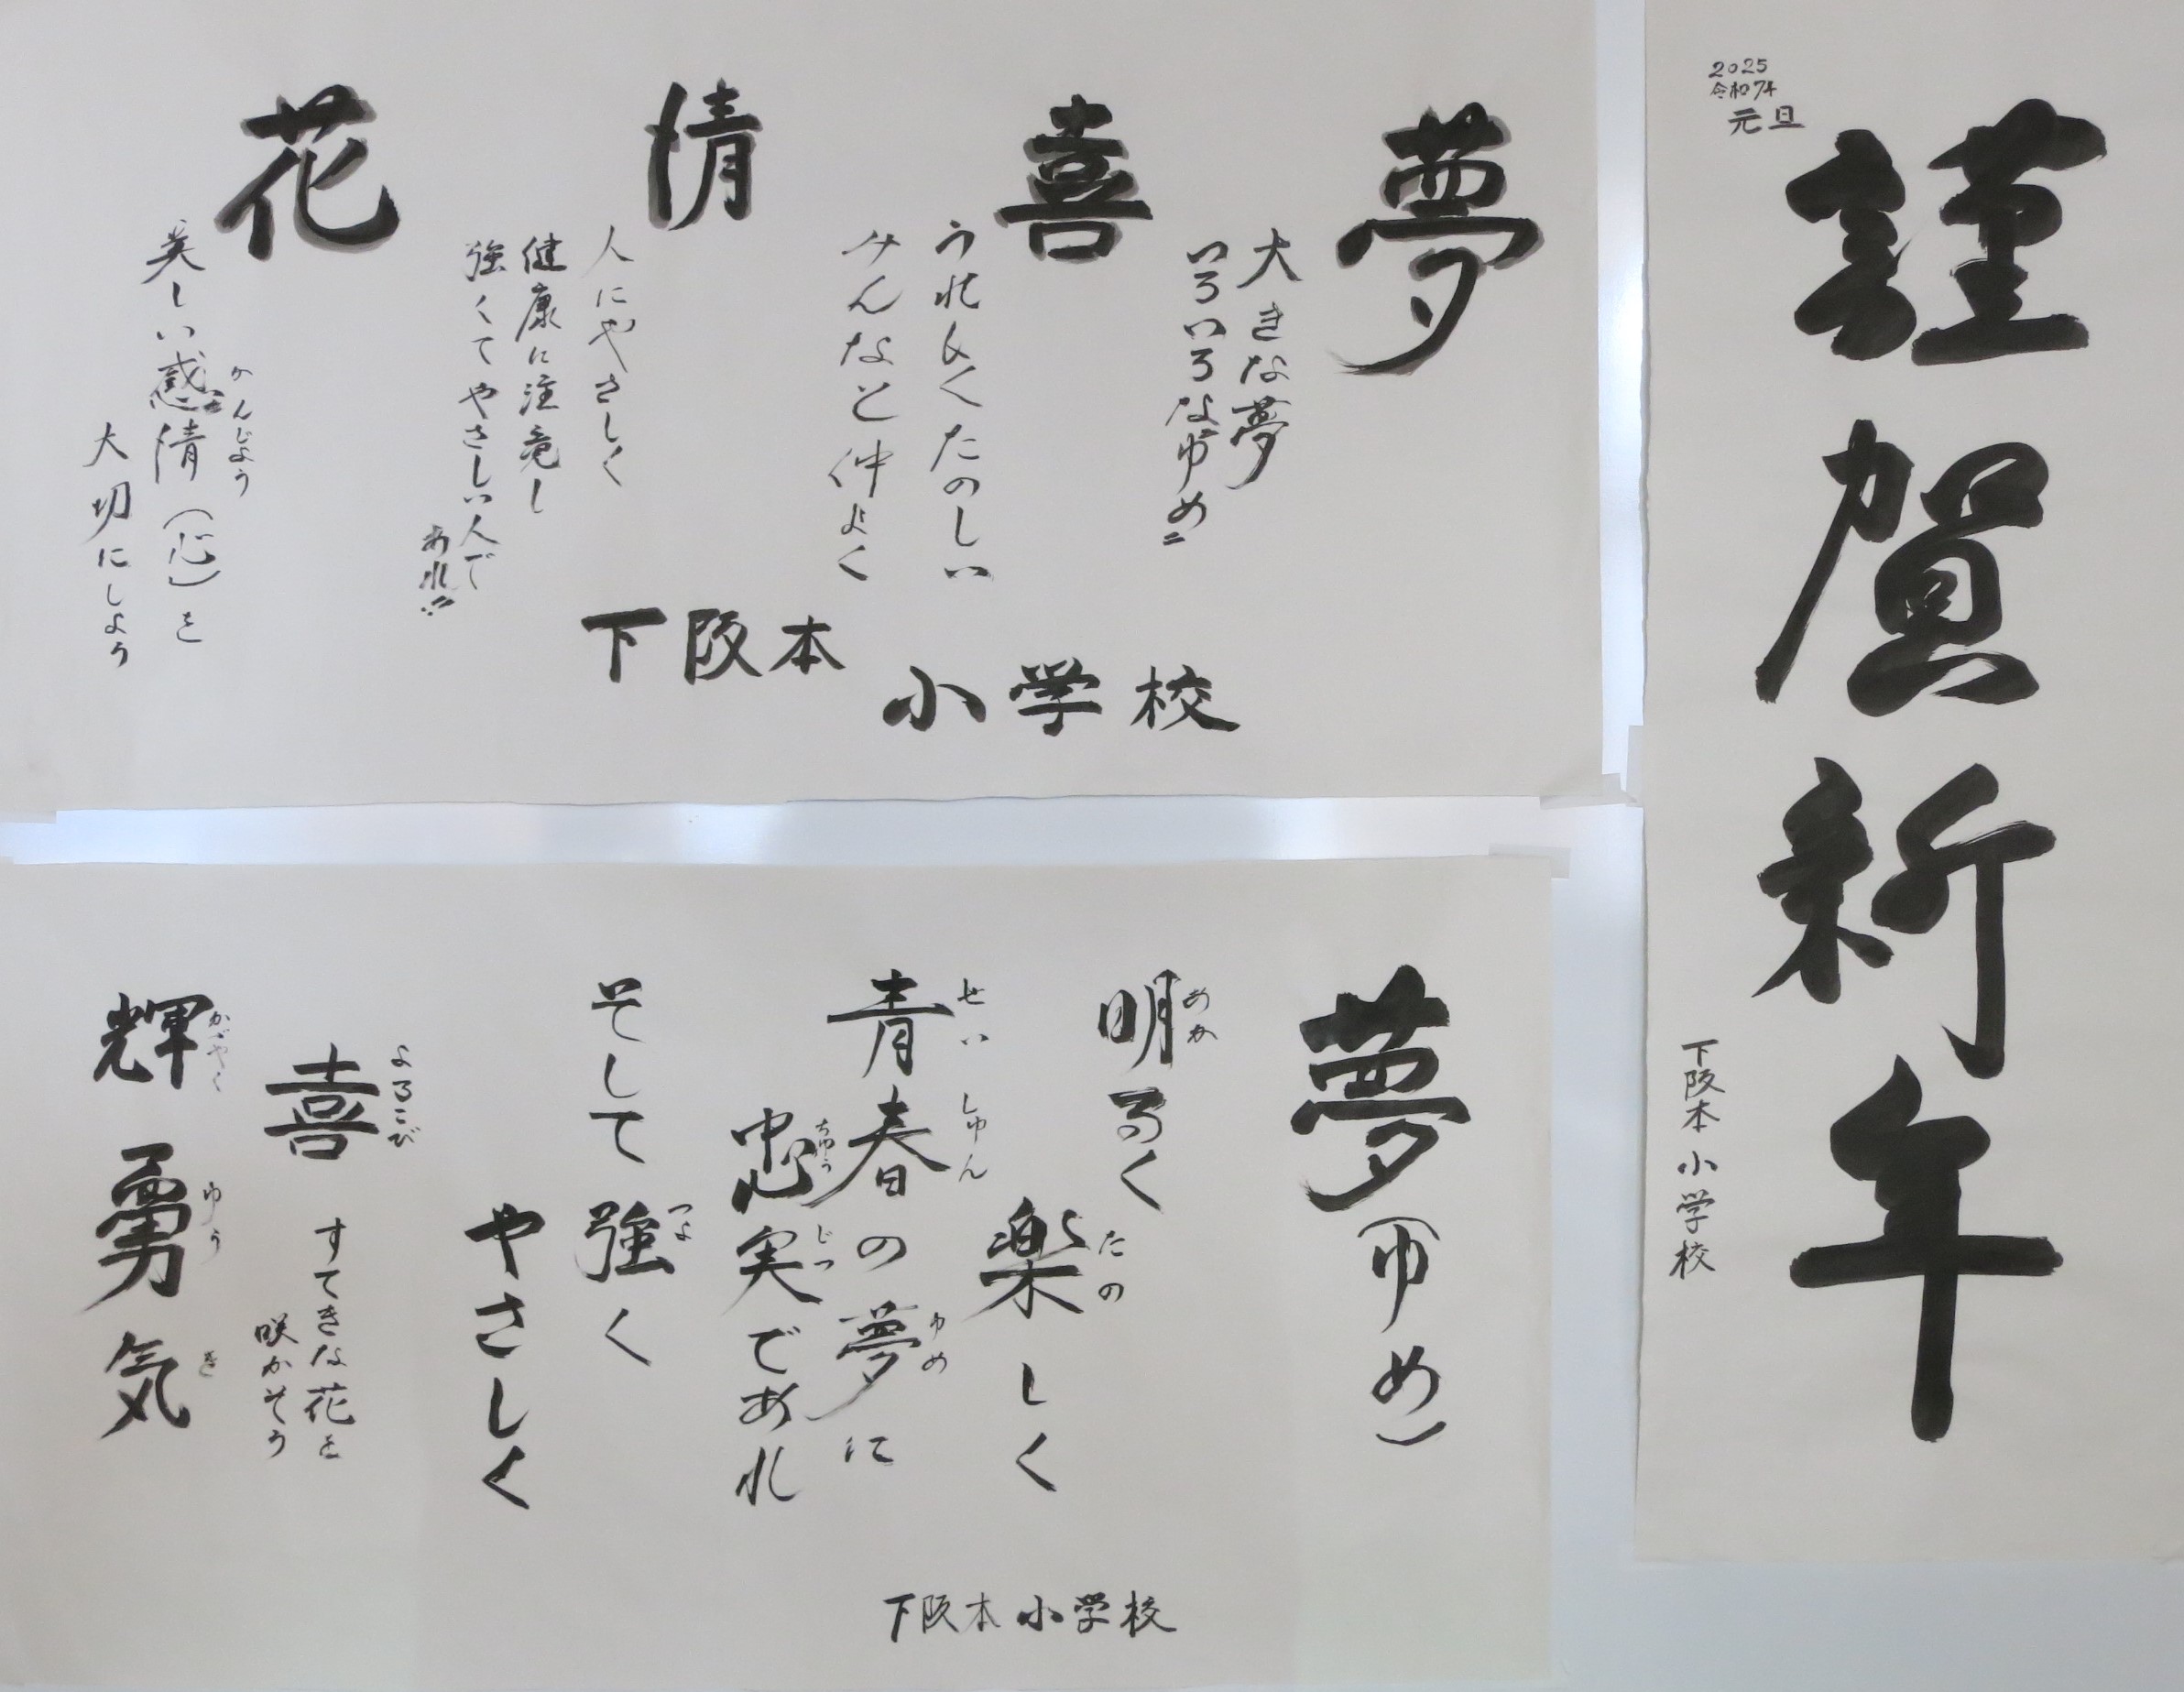 2025
令和7年
元旦
謹賀新年
下阪本小学校
夢
大きな夢
いろいろなゆめ
喜
うれしくたのしい
みんなと仲よく
情
人にやさしく
健康に注意し
強くてやさしい人で
あれ!!
花
美しい感情(心)を
かんじょう
大切にしよう
下阪本
小学校
夢(ゆめ)
明るく
あか
楽しく
たの
青春の夢に
せいしゅん ゆめ
忠実であれ
ちゅうじつ
そして強く
つよ
やさしく
喜
よろこび
すてきな花を
咲かそう
輝
かがやく
勇気
ゆうき
下阪本小学校